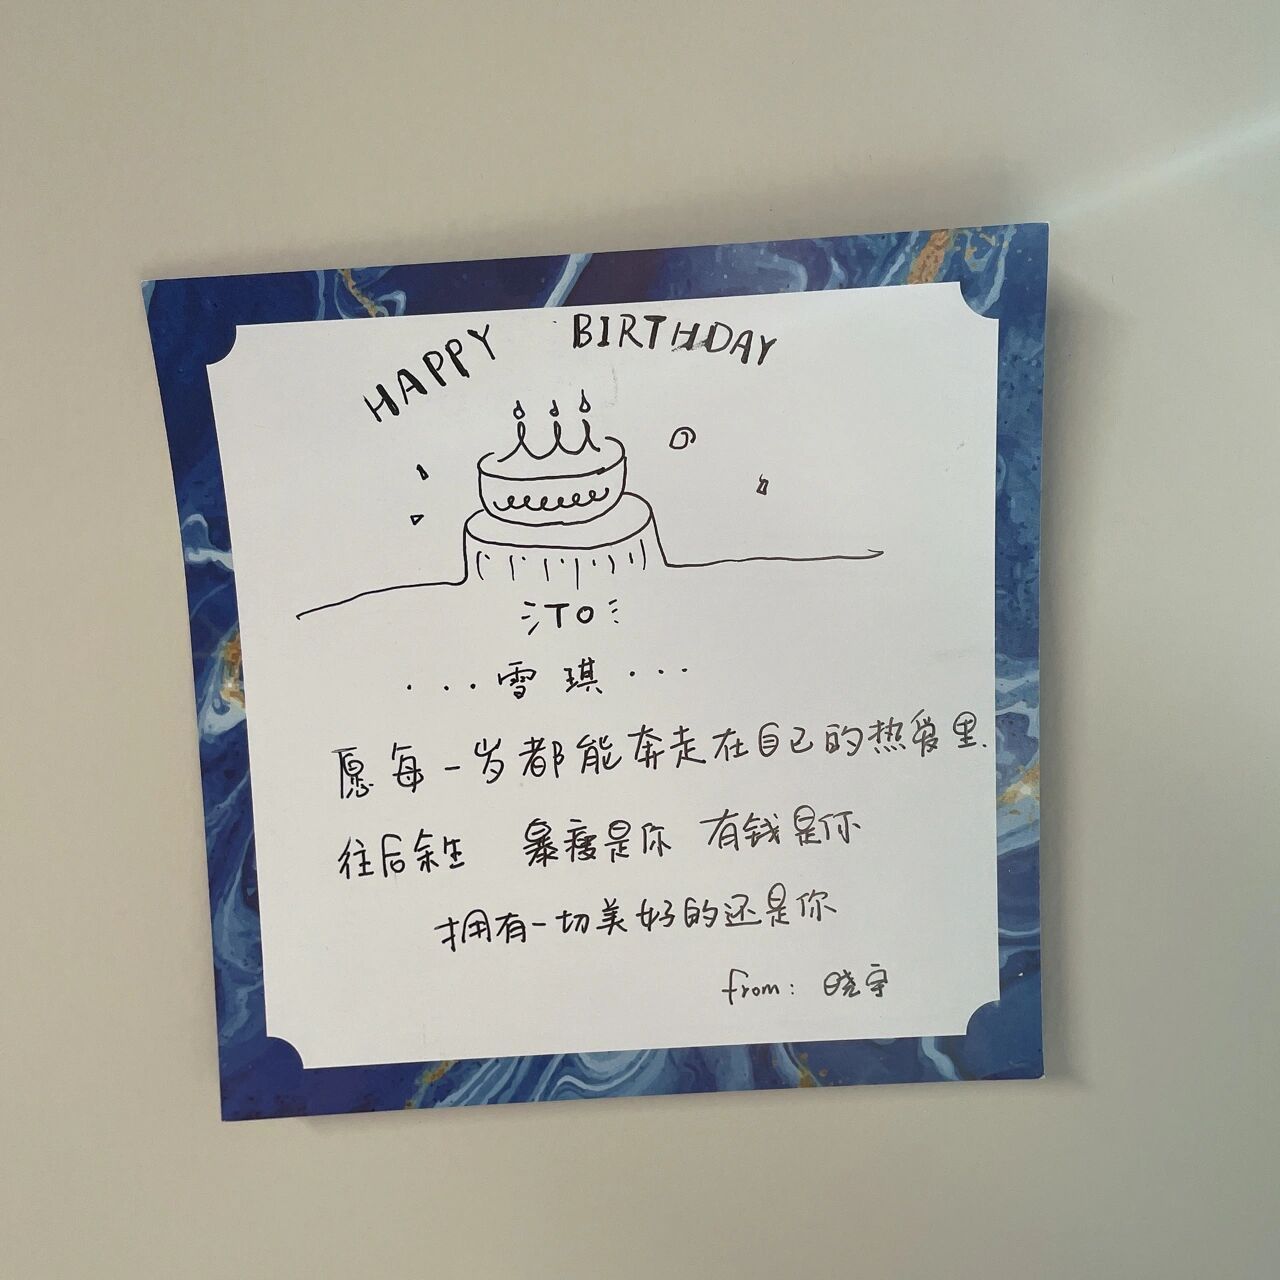 HAPPY BIRTHDAY
TO
...雪琪...
愿每一岁都能奔走在自己的热爱里.
往后余生 暴瘦是你 有钱是你
拥有一切美好的还是你
from: 晓宇